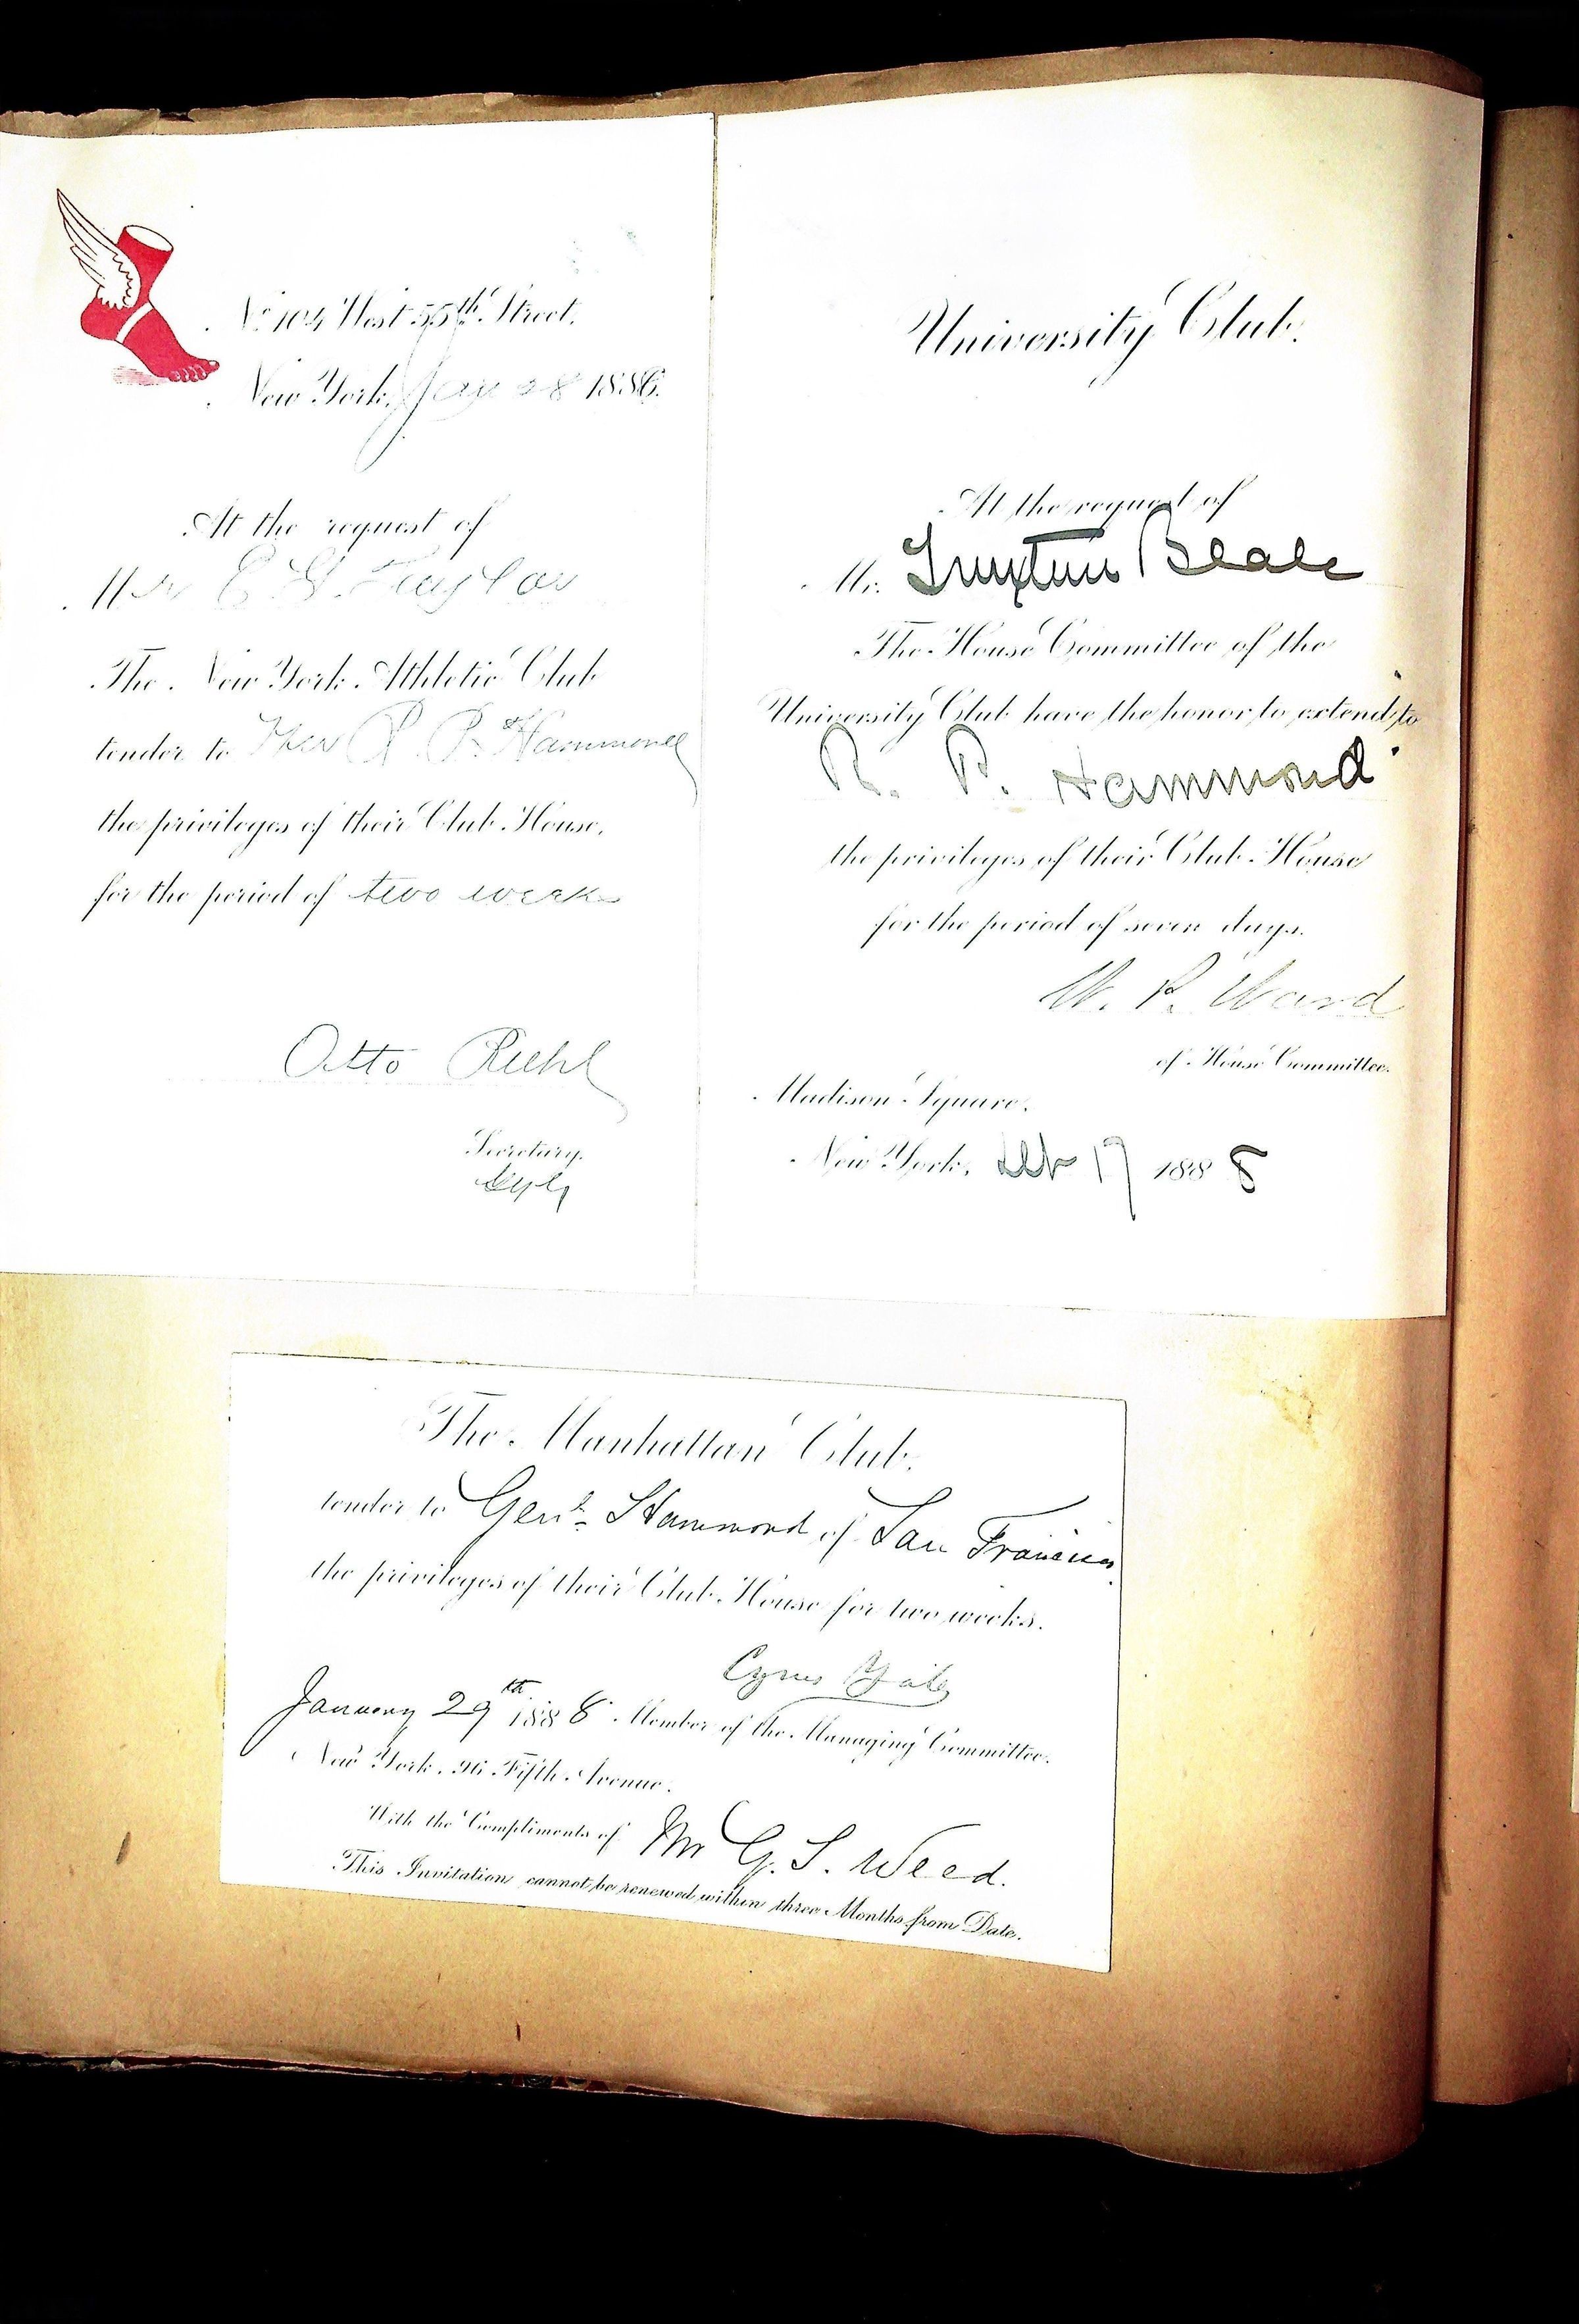 No 104 West 55th Street.
New York, Jan 28 1886.
At the request of
Mr E G. Taylor
The New York Athletic Club
tender to Mr R. P. Hammond
the privileges of their Club House,
for the period of two weeks
Otto Ruhl
Secretary.
University Club.
At the request of
Mr. Truxtun Beale
The House Committee of the
University Club have the honor to extend to
R. P. Hammond
the privileges of their Club House
for the period of seven days.
W. P. Ward
of House Committee.
Madison Square.
New York, 17 1888
The Manhattan Club.
tender to Genl Hammond of San Francisco
the privileges of their Club House for two weeks.
Cyrus Yale
January 29th 1888 Member of the Managing Committee.
New York, 96 Fifth Avenue.
With the Compliments of Mr G. S. Weed.
This Invitation cannot be renewed within three Months from Date.